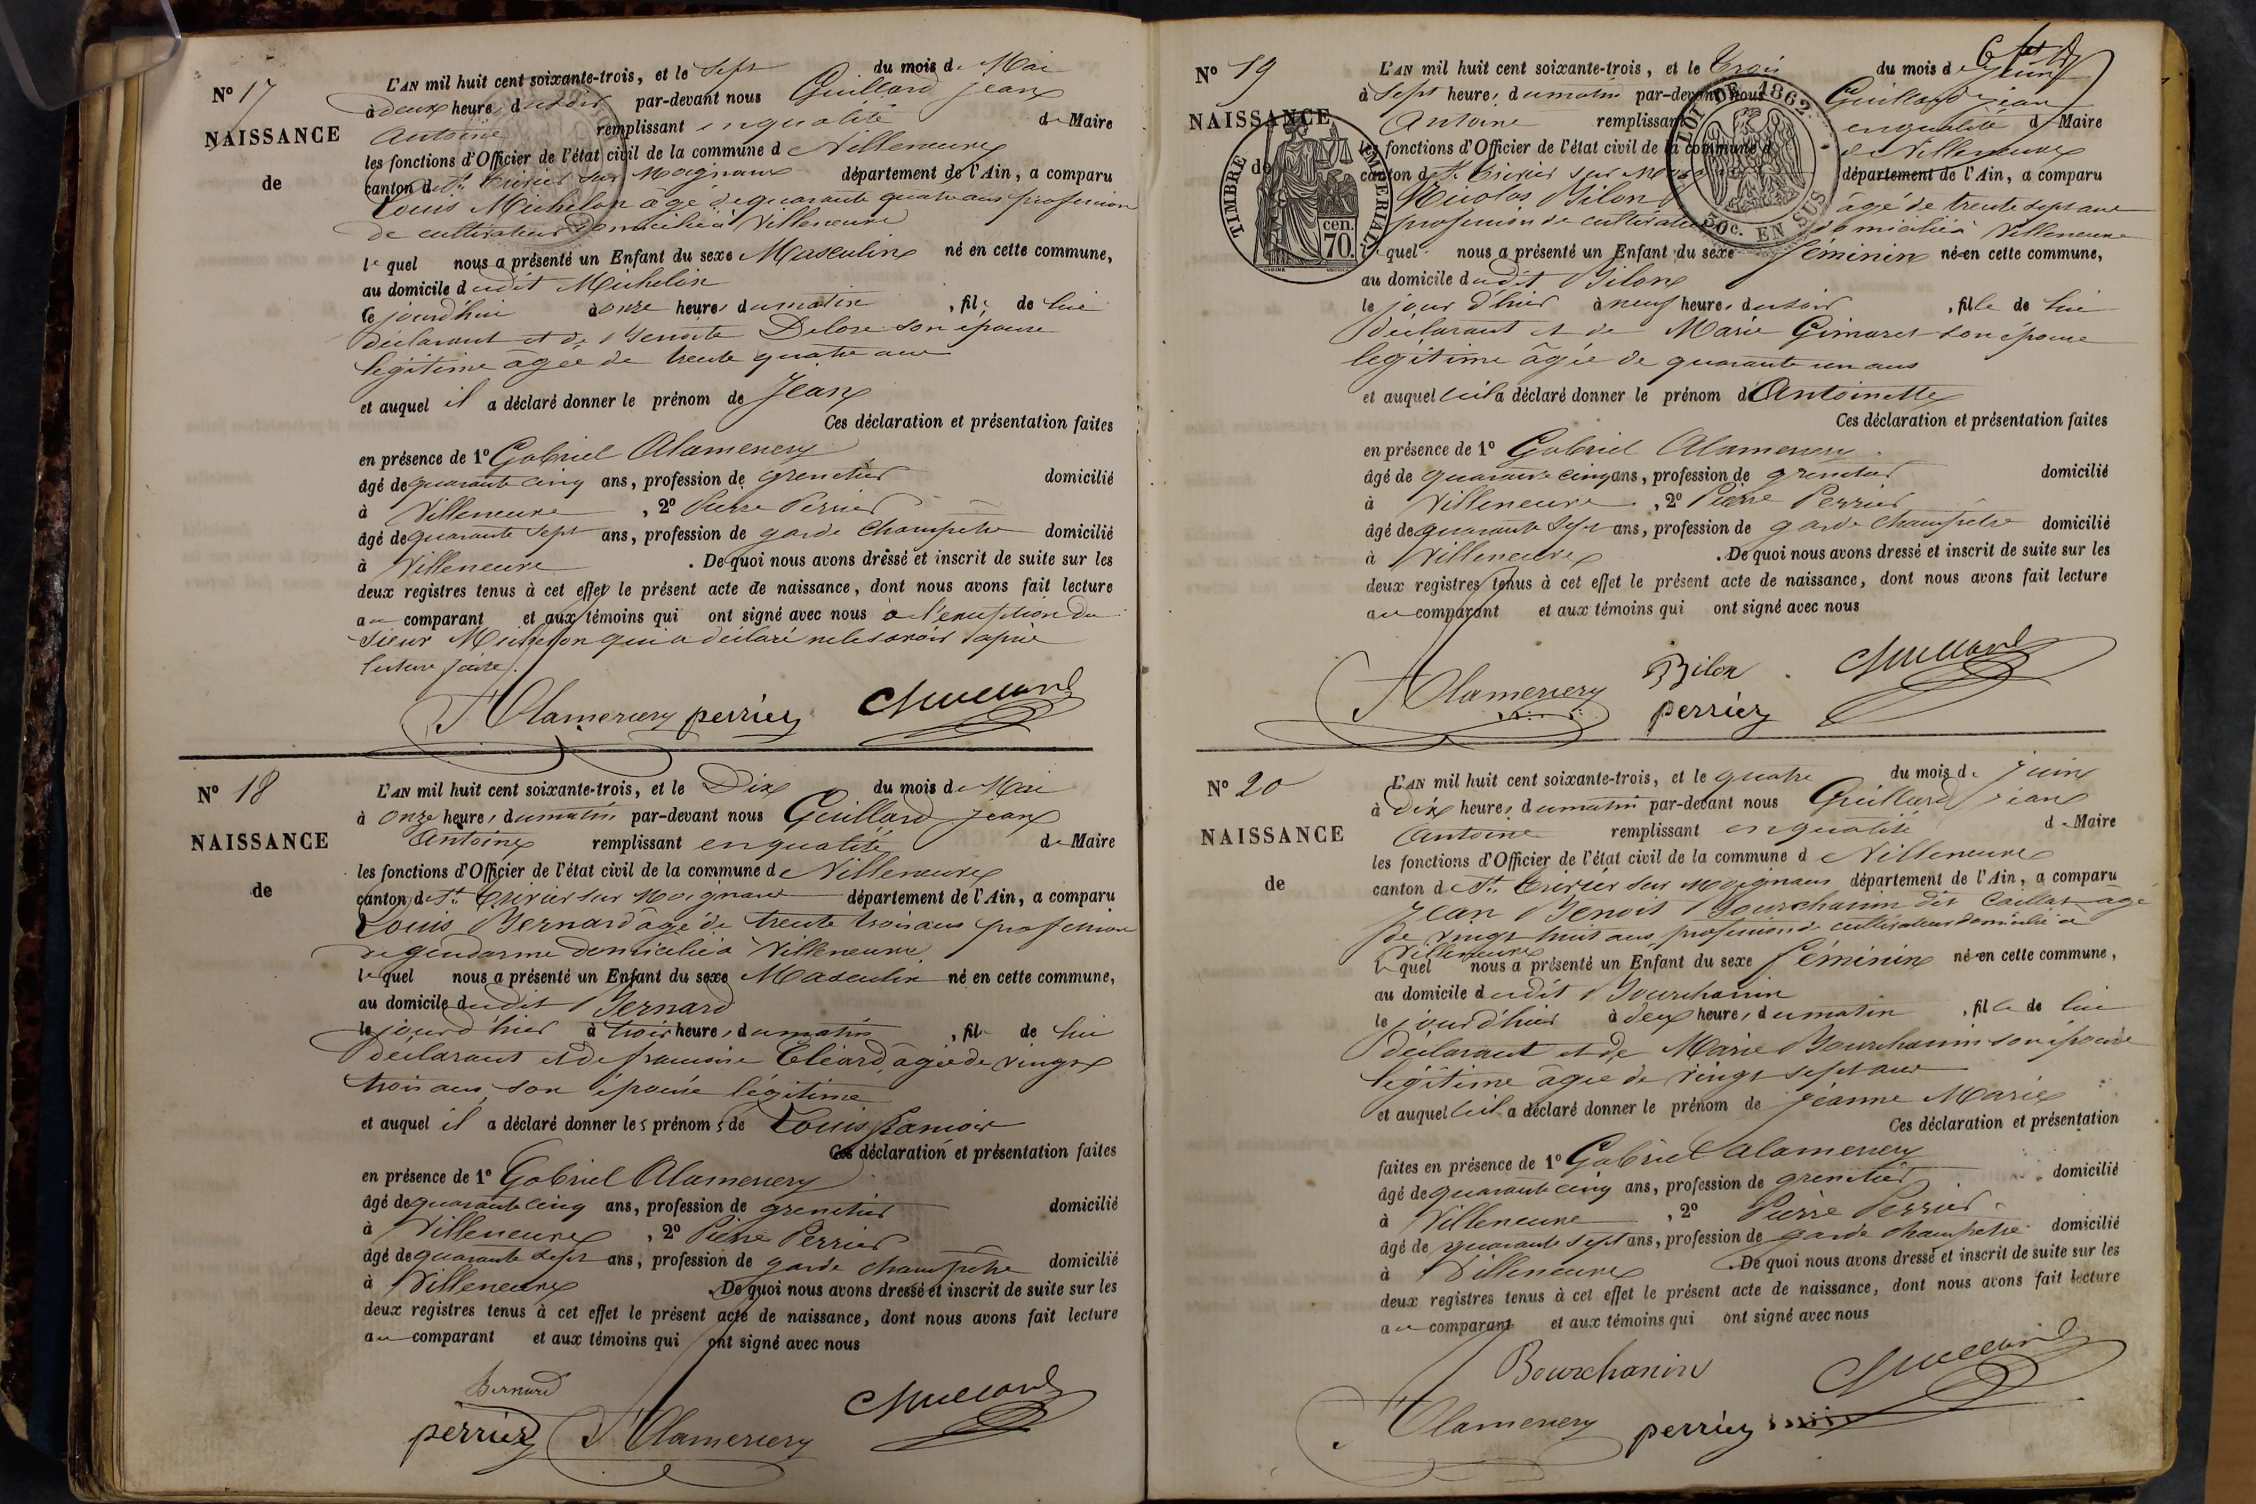 N° 17
NAISSANCE
de
L'AN mil huit cent soixante-trois, et le Sept du mois de Mai
à deux heures du soir par-devant nous Guillard Jean
Antoine remplissant en qualité de Maire
les fonctions d'Officier de l'état civil de la commune de Villeneuve
canton de St Trivier sur Moignans département de l'Ain, a comparu
Louis Michelon âgé de quarante quatre ans profession
de cultivateur domicilié à Villeneuve
lequel nous a présenté un Enfant du sexe Masculin né en cette commune,
au domicile dudit Michelon
ce jourd'hui à onze heures du matin, fils de lui
déclarant et de Benoite Delore son épouse
légitime âgée de trente quatre ans
et auquel il a déclaré donner le prénom de Jean
Ces déclaration et présentation faites
en présence de 1° Gabriel Alamercery
âgé de quarante cinq ans, profession de grenetier domicilié
à Villeneuve, 2° Pierre Perrier
âgé de quarante sept ans, profession de garde champêtre domicilié
à Villeneuve. De quoi nous avons dressé et inscrit de suite sur les
deux registres tenus à cet effet le présent acte de naissance, dont nous avons fait lecture
au comparant et aux témoins qui ont signé avec nous à l'exception du
sieur Michelon qui a déclaré ne le savoir d'après
lecture faite.
Alamercery perrier Guillard
N° 18
NAISSANCE
de
L'AN mil huit cent soixante-trois, et le Dix du mois de Mai
à onze heures du matin par-devant nous Guillard Jean
Antoine remplissant en qualité de Maire
les fonctions d'Officier de l'état civil de la commune de Villeneuve
canton de St Trivier sur Moignans département de l'Ain, a comparu
Louis Bernard âgé de trente trois ans profession
de gendarme domicilié à Villeneuve
lequel nous a présenté un Enfant du sexe Masculin né en cette commune,
au domicile dudit Bernard
le jour d'hier à trois heures du matin, fils de lui
déclarant et de francoise Cléard, âgée de vingt
trois ans, son épouse légitime
et auquel il a déclaré donner les prénoms de Louis
Ces déclaration et présentation faites
en présence de 1° Gabriel Alamercery
âgé de quarante cinq ans, profession de grenetier domicilié
à Villeneuve, 2° Pierre Perrier
âgé de quarante sept ans, profession de garde champêtre domicilié
à Villeneuve. De quoi nous avons dressé et inscrit de suite sur les
deux registres tenus à cet effet le présent acte de naissance, dont nous avons fait lecture
au comparant et aux témoins qui ont signé avec nous
Bernard
perrier Alamercery Guillard
N° 19
NAISSANCE
de
TIMBRE IMPÉRIAL
cen. 70.
LOI DE 1862
50c. EN SUS
L'AN mil huit cent soixante-trois, et le Trois du mois de Juin
à Sept heures du matin par-devant nous Guillard Jean
Antoine remplissant en qualité de Maire
les fonctions d'Officier de l'état civil de la commune de Villeneuve
canton de St Trivier sur département de l'Ain, a comparu
Nicolas Bilon âgé de trente sept ans
profession de cultivateur domicilié à Villeneuve
lequel nous a présenté un Enfant du sexe féminin né en cette commune,
au domicile dudit Bilon
le jour d'hier à neuf heures du soir, fille de lui
déclarant et de Marie Gimaret son épouse
légitime âgée de quarante un ans
et auquel il a déclaré donner le prénom d'Antoinette
Ces déclaration et présentation faites
en présence de 1° Gabriel Alamercery
âgé de quarante cinq ans, profession de grenetier domicilié
à Villeneuve, 2° Pierre Perrier
âgé de quarante sept ans, profession de garde champêtre domicilié
à Villeneuve. De quoi nous avons dressé et inscrit de suite sur les
deux registres tenus à cet effet le présent acte de naissance, dont nous avons fait lecture
au comparant et aux témoins qui ont signé avec nous
Alamercery Bilon Guillard
perrier
N° 20
NAISSANCE
de
L'AN mil huit cent soixante-trois, et le quatre du mois de Juin
à Dix heures du matin par-devant nous Guillard Jean
Antoine remplissant en qualité de Maire
les fonctions d'Officier de l'état civil de la commune de Villeneuve
canton de St Trivier sur Moignans département de l'Ain, a comparu
Jean Benoit Bourchanin dit Caillat âgé
de vingt huit ans, profession de cultivateur domicilié à
Villeneuve
lequel nous a présenté un Enfant du sexe féminin né en cette commune,
au domicile dudit Bourchanin
le jour d'hier à deux heures du matin, fille de lui
déclarant et de Marie Bourchanin son épouse
légitime âgée de vingt sept ans
et auquel il a déclaré donner le prénom de Jeanne Marie
Ces déclaration et présentation
faites en présence de 1° Gabriel Alamercery
âgé de quarante cinq ans, profession de grenetier domicilié
à Villeneuve, 2° Pierre Perrier
âgé de quarante sept ans, profession de garde champêtre domicilié
à Villeneuve. De quoi nous avons dressé et inscrit de suite sur les
deux registres tenus à cet effet le présent acte de naissance, dont nous avons fait lecture
au comparant et aux témoins qui ont signé avec nous
Bourchanin Guillard
Alamercery perrier